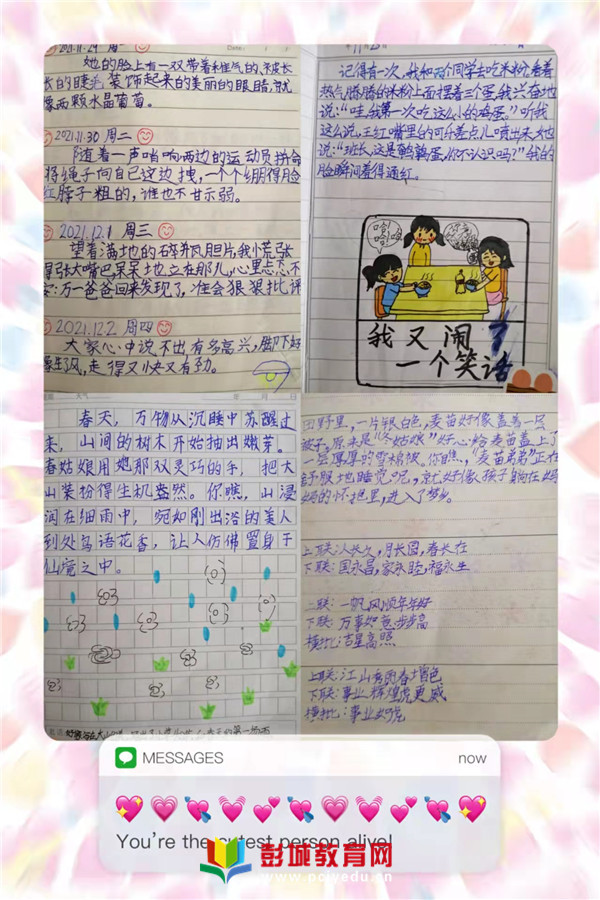 2021.11.29 周
Date:
她的脸上有一双带着稚气的、被长
长的睫毛装饰起来的美丽的眼睛,就
像两颗水晶葡萄。
2021.11.30 周二
随着一声哨响两边的运动员拼命
将绳子向自己这边拽,一个个绷得脸
红脖子粗的,谁也不甘示弱。
2021.12.1 周三
望着满地的碎瓶胆片,我小荒张
得张大嘴巴呆呆地立在那儿,心里忐忑不
安:万一爸爸回来发现了,准会狠狠批评
2021.12.2 周四
大家心中说不出有多高兴,脚下好
像生了风,走得又快又有劲。
11月25日
记得有一次,我和两个同学去吃米粉,看着
热气腾腾的米粉上面摆着三个蛋,我兴奋地
说:“哇,我第一次吃这么小的鸡蛋。”听我
这么说,王红嘴里的可乐差点儿喷出来,她
说:“班长,这是鹌鹑蛋,你不认识吗?”我的
脸瞬间羞得通红。
哈哈
哈哈
我又闹了
一个笑话
春天,万物从沉睡中苏醒过
来,山间的树木开始抽出嫩芽。
春姑娘用她那双灵巧的手,把大
山装扮得生机盎然。你瞧,山浸
润在细雨中,宛如刚出浴的美人
到处鸟语花香,让人仿佛置身于
仙境之中。
田野里,一片银白色,麦苗好像盖着一层
被子。原来是“冬姑娘”好心给麦苗盖上了
一层厚厚的雪棉被。你瞧,“麦苗弟弟”正在
舒服地睡觉呢,就好像孩子躺在妈
妈的怀抱里,进入了梦乡。
上联:人长久,月长圆,春长在
下联:国永昌,家永睦,福永生
上联:一帆风顺年年好
下联:万事如意步步高
横批:吉星高照
上联:江山秀丽春增色
下联:事业辉煌虎更威
横批:事业如虎
MESSAGES
now
You're the cutest person alive!
彭城教育网
www.pcwedu.cn